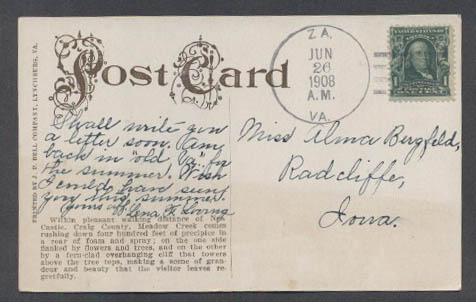 Post Card
PRINTED BY J. P. BELL COMPANY, LYNCHBURG, VA.
ZA,
JUN
26
1908
A.M.
VA.
I shall write you
a letter soon. Am
back in old Va. for
the summer. Wish
I could have seen
you this summer.
Lena F.
Within pleasant walking distance of New
Castle, Craig County, Meadow Creek comes
rushing down four hundred feet of precipice in
a roar of foam and spray; on the one side
flanked by flowers and trees, and on the other
by a fern-clad overhanging cliff that towers
above the tree tops, making a scene of gran-
deur and beauty that the visitor leaves re-
gretfully.
Miss Alma Bergfeld,
Radcliffe,
Iowa.